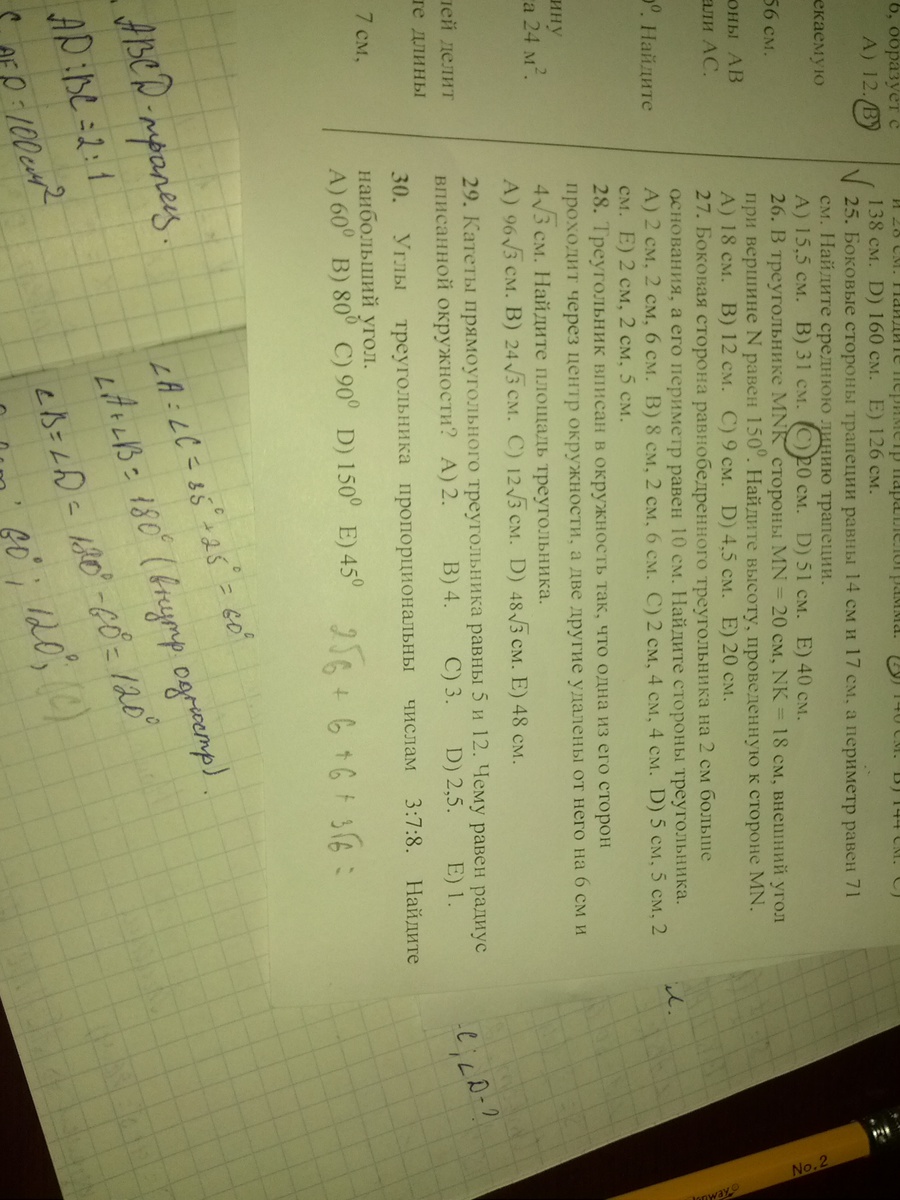 6, образует с
A) 12. B)
екаемую
56 см.
оны AB
али AC.
)⁰. Найдите
ину
а 24 м².
лей делит
те длины
7 см,
и 28 см. Найдите периметр параллелограмма.
138 см. D) 160 см. E) 126 см.
√ 25. Боковые стороны трапеции равны 14 см и 17 см, а периметр равен 71
см. Найдите среднюю линию трапеции.
A) 15,5 см. B) 31 см. C) 20 см. D) 51 см. E) 40 см.
26. В треугольнике MNK стороны MN = 20 см, NK = 18 см, внешний угол
при вершине N равен 150⁰. Найдите высоту, проведенную к стороне MN.
A) 18 см. B) 12 см. C) 9 см. D) 4,5 см. E) 20 см.
27. Боковая сторона равнобедренного треугольника на 2 см больше
основания, а его периметр равен 10 см. Найдите стороны треугольника.
A) 2 см, 2 см, 6 см. B) 8 см, 2 см, 6 см. C) 2 см, 4 см, 4 см. D) 5 см, 5 см, 2
см. E) 2 см, 2 см, 5 см.
28. Треугольник вписан в окружность так, что одна из его сторон
проходит через центр окружности, а две другие удалены от него на 6 см и
4√3 см. Найдите площадь треугольника.
A) 96√3 см. B) 24√3 см. C) 12√3 см. D) 48√3 см. E) 48 см.
29. Катеты прямоугольного треугольника равны 5 и 12. Чему равен радиус
вписанной окружности? A) 2. B) 4. C) 3. D) 2,5. E) 1.
30. Углы треугольника пропорциональны числам 3:7:8. Найдите
наибольший угол.
A) 60⁰ B) 80⁰ C) 90⁰ D) 150⁰ E) 45⁰
2√6 + 6 + 6 + 3√6 =
ABCD - трапец.
AD : BC = 2 : 1
= 100 см²
∠A = ∠C = 35° + 25° = 60°
∠A + ∠B = 180° (внутр одностр).
∠B = ∠D = 180° - 60° = 120°
60°; 120°,
C; ∠D - ?
No.2